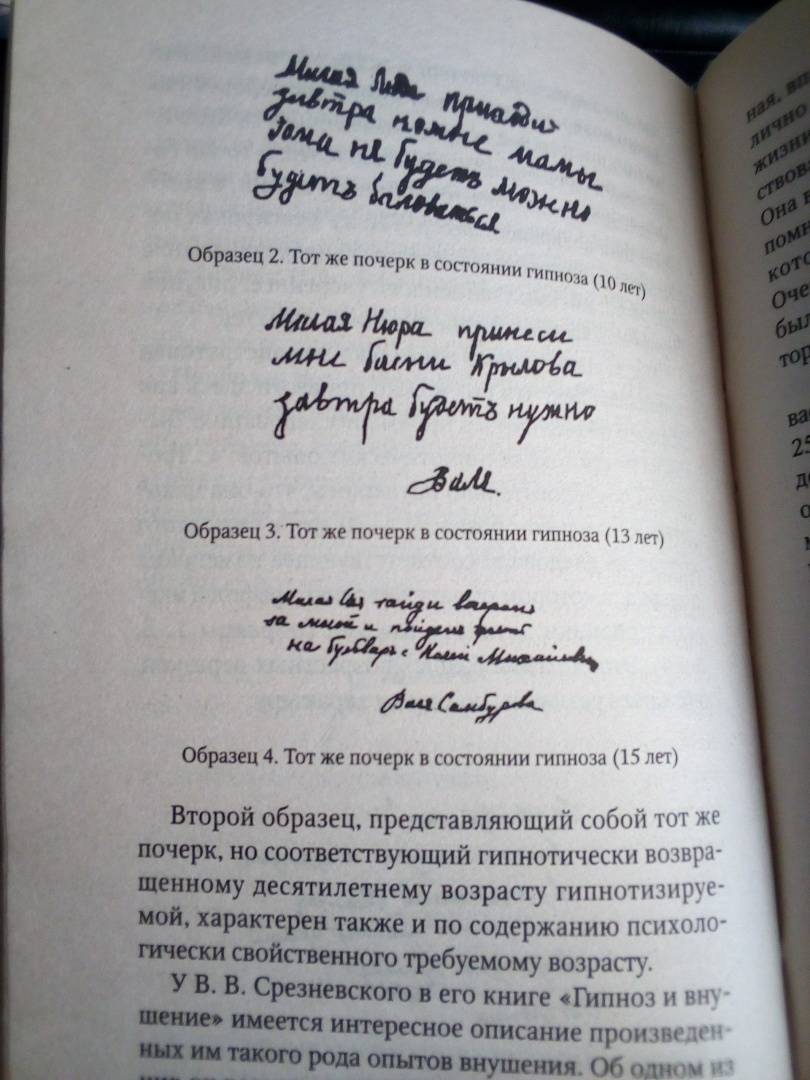 Милая приходи
завтра комне мамы
дома не будетъ можно
будетъ баловаться
Образец 2. Тот же почерк в состоянии гипноза (10 лет)
милая Нюра принеси
мне басни Крылова
завтра будетъ нужно
Валя.
Образец 3. Тот же почерк в состоянии гипноза (13 лет)
Милая зайди вечером
за мной и пойдемъ
на бульваръ с Колей Михайловичем
Валя Самбурова
Образец 4. Тот же почерк в состоянии гипноза (15 лет)
Второй образец, представляющий собой тот же
почерк, но соответствующий гипнотически возвра-
щенному десятилетнему возрасту гипнотизируе-
мой, характерен также и по содержанию психоло-
гически свойственного требуемому возрасту.
У В. В. Срезневского в его книге «Гипноз и вну-
шение» имеется интересное описание произведен-
ных им такого рода опытов внушения. Об одном из
ная, вп
лично
жизни
ствова
Она в
помн
кото
Оче
был
тор
ва
25
де
о